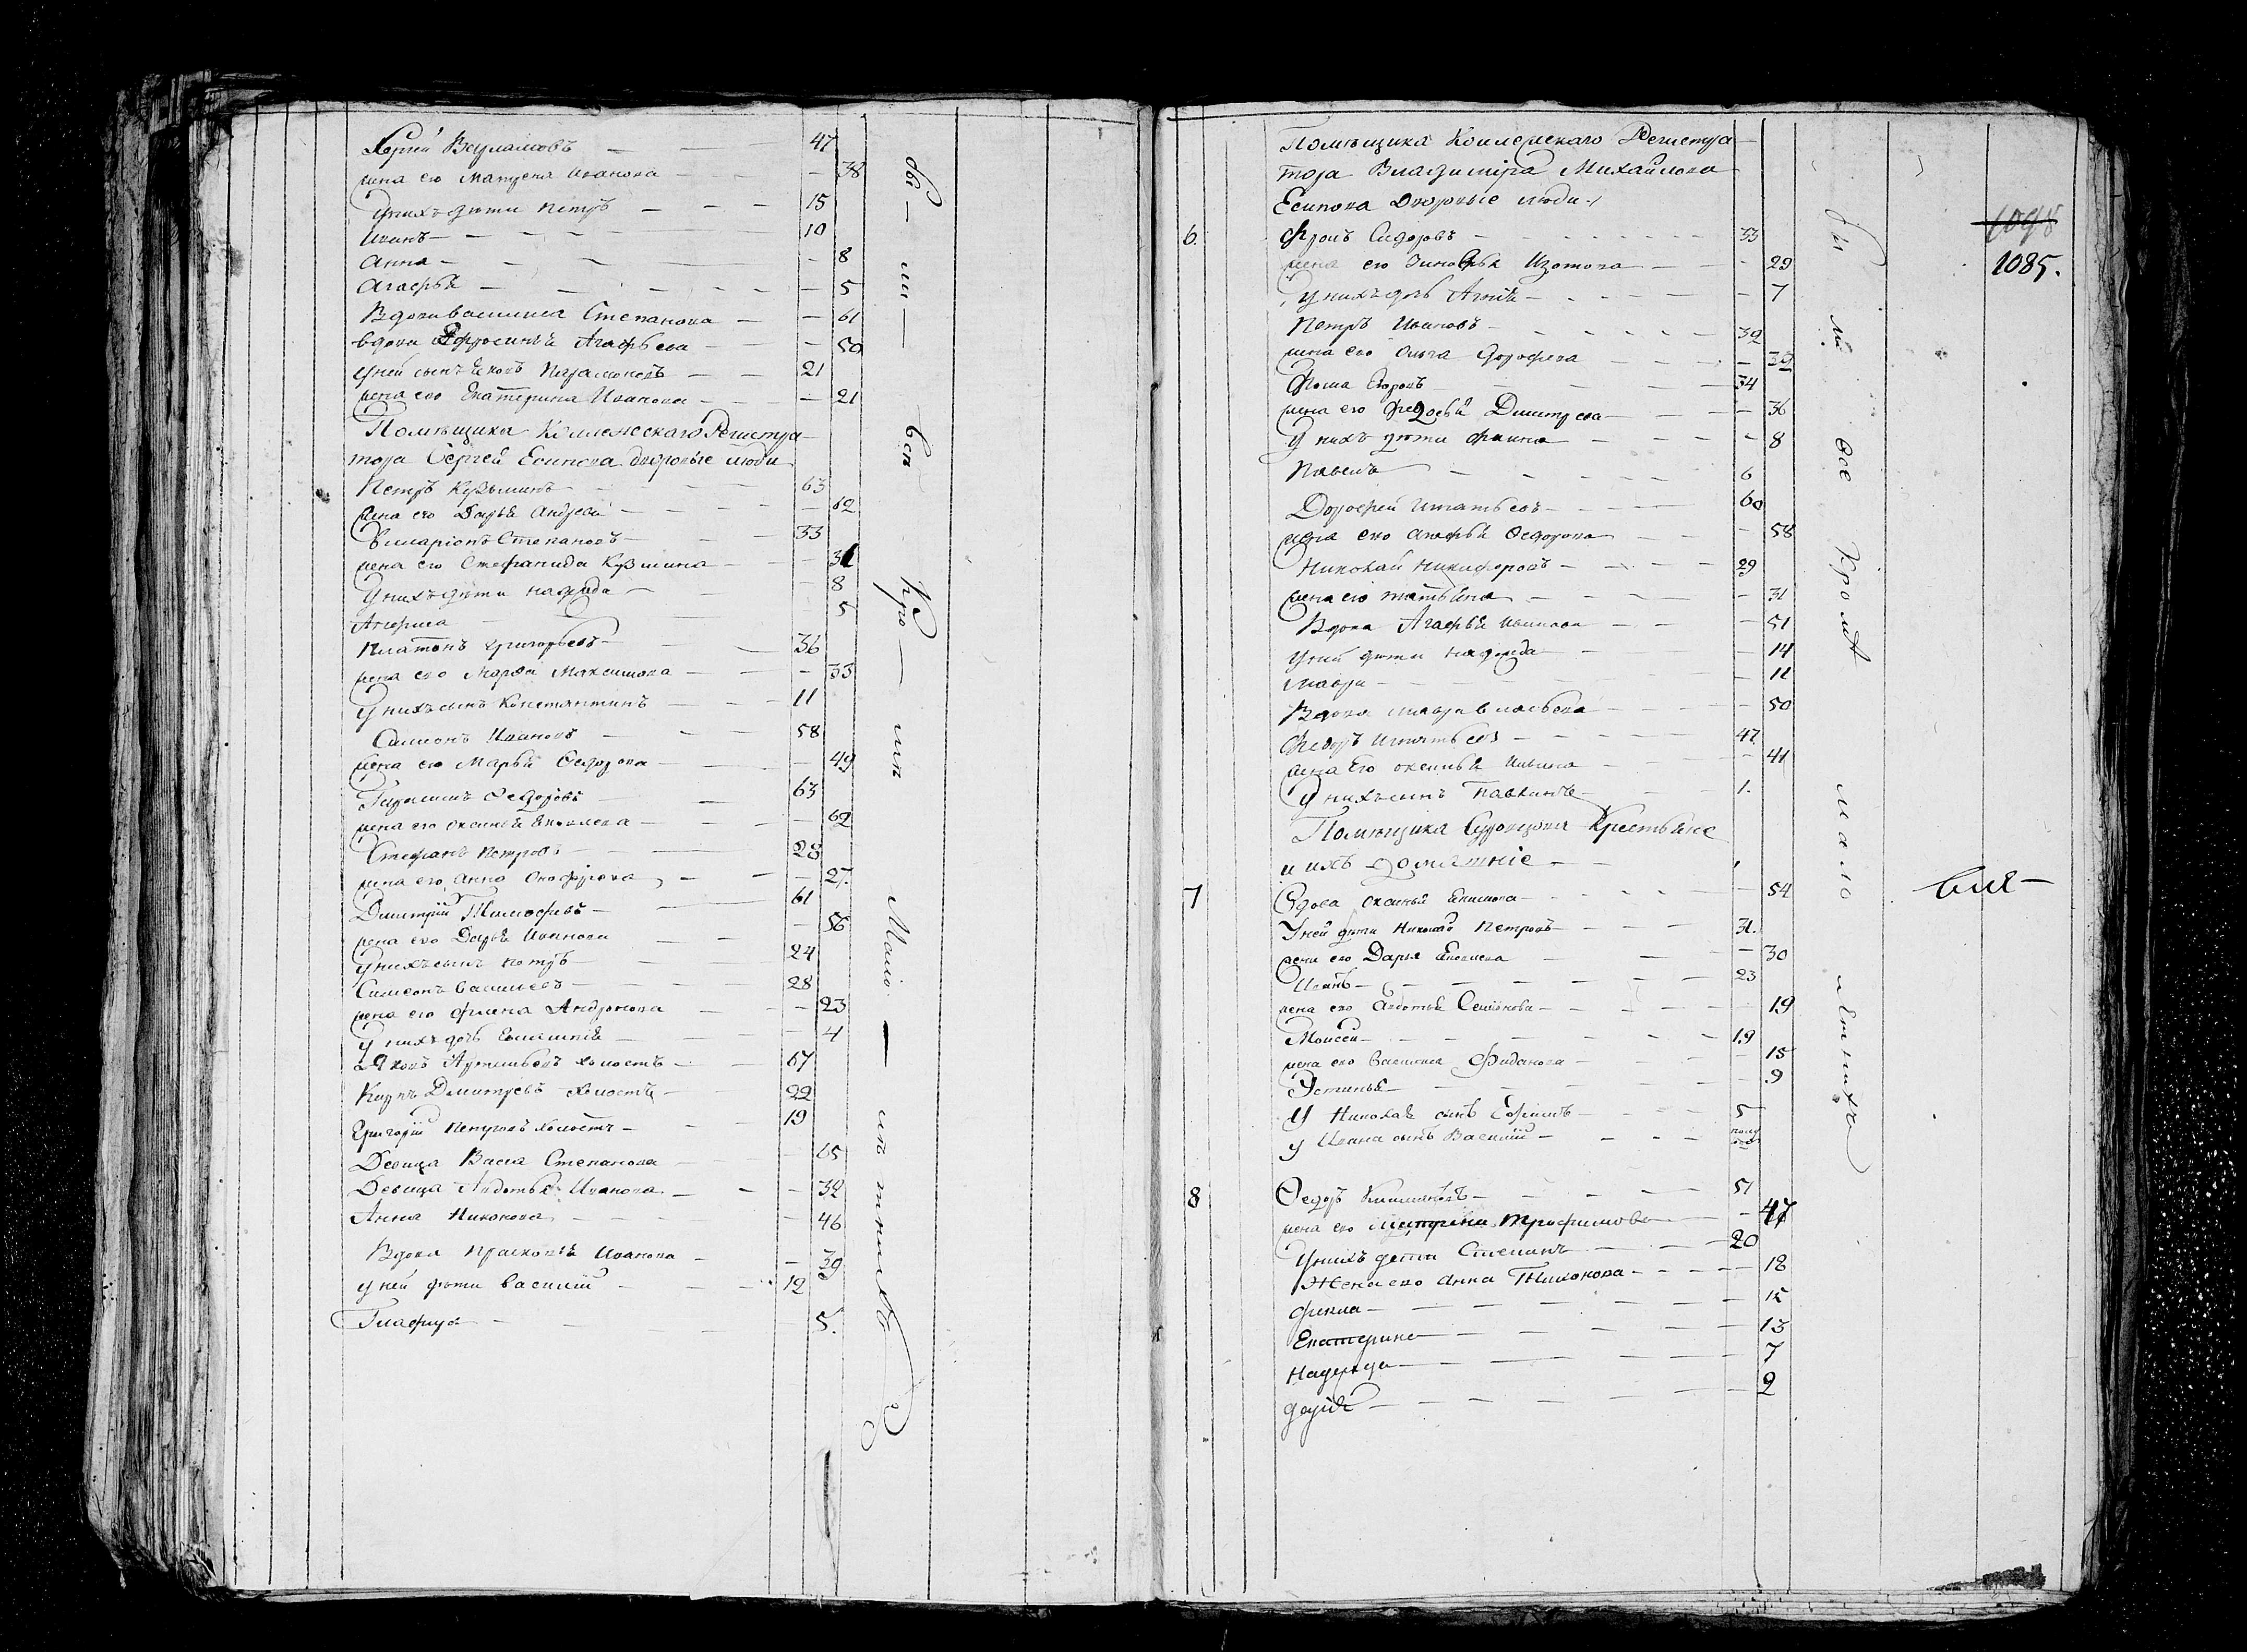 Сергей Варламовъ 47
жена его Матрена Иванова 38
у нихъ дѣти Петръ 15
Иванъ 10
Анна 8
Агафья 5
Вдова Василиса Степанова 61
вдова Ефросинья Агафьева 50
у ней сынъ Яковъ Парамоновъ 21
жена его Екатерина Иванова 21
Помѣщика Коллежскаго Регистра
тора Сергея Есипова дворовые люди
Петръ Кузьминъ 63
жена его Дарья Андреева 62
Иларіонъ Степановъ 33
жена его Стефанида Кузмина
у нихъ дѣти Надежда 8
5
Платонъ Григорьевъ 36
жена его Марфа Максимова 33
у нихъ сынъ Константинъ 11
Симеонъ Ивановъ 58
жена его Марья Ѳедорова 49
Герасимъ Ѳедоровъ 63
жена его Оксинья Яковлева 62
Стефанъ Петровъ 28
жена его Анна 27
Дмитрій Тимофеевъ 61
жена его Дарья Иванова 56
у нихъ сынъ Петръ 24
Симеонъ Васильевъ 28
жена его Фекла Андронова 23
у нихъ дочь 4
Яковъ Артемьевъ холостъ 67
Карпъ Дмитріевъ холостъ 22
Григорій Петровъ холостъ 19
Девица Васса Степанова 65
Девица Авдотья Иванова 32
Анна Никонова 46
Вдова Прасковья Иванова 39
у ней дѣти Василій 12
Глафира 5.
бы — ли — всѣ Кро — мѣ Мало — лѣтныхъ
Помѣщика Коллежскаго Регистра
тора Владиміра Михайлова
Есипова Дворовые люди
6. Фролъ Сидоровъ 33
жена его Зиновья Изотова 29
у нихъ дочь 7
Петръ Ивановъ 32
жена его Ольга Дорофеева
Фома Егоровъ 34
жена его Федосья Дмитрева 36
у нихъ дѣти Фаина 8
Павелъ 6
Дорофей Игнатьевъ 60
жена его Агафья Ѳедорова 58
Николай Никифоровъ 29
жена его Татьяна 31
Вдова Агафья Иванова 51
у ней дѣти Надежда 14
Мавра 11
Вдова Мавра 50
Федоръ Игнатьевъ 47
жена его Оксинья Ильина 41
у нихъ сынъ Павлинъ 1.
Помѣщика Крестьяне
и ихъ домашніе
7 Вдова Оксинья 54
У ней дѣти Николай Петровъ 31.
жена его Дарья Яковлева 30
Иванъ 23
жена его Авдотья Семіонова 19
Моисей 19
жена его Василиса 15
Устинья 9
У Николая сынъ Ефимъ 5
у Ивана сынъ Василій полу года
8 Ѳедоръ 51
жена его Матрена Трофимова 47
у нихъ дети Степанъ 20
Жена его Анна Тихонова 18
Фекла 15
Екатерина 13
Надежда 7
Дарія 2
бы ли все Кромѣ мало летныхъ
1085.